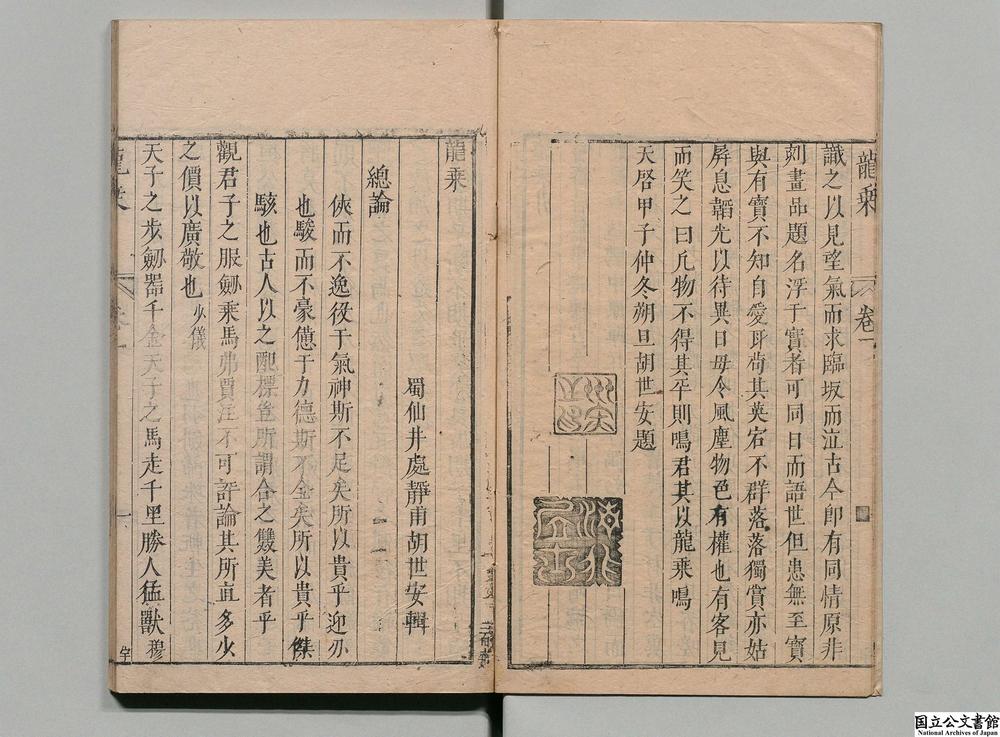 龍乗
卷一
識之以見望氣而求臨坂而泣古今卽有同情原非
刻畫品題名浮于實者可同日而語世但患無至寶
與有寶不知自愛耳苟其英宕不群落落獨賞亦姑
屛息韜光以待異日毋令風塵物色有權也有客見
而笑之曰凡物不得其平則鳴君其以龍乗鳴
天啓甲子仲冬朔旦胡世安題
龍乗
蜀仙井處靜甫胡世安輯
總論
俠而不逸役于氣神斯不足矣所以貴乎迎刃
也駿而不豪憊于力德斯不全矣所以貴乎傑
駭也古人以之配標豈所謂合之雙美者乎
觀君子之服劒乘馬弗賈注不可評論其所直多少
之價以廣敬也少儀
天子之步劒器千金天子之馬走千里勝人猛獸穆
龍乗
卷一
一
国立公文書館
National Archives of Japan